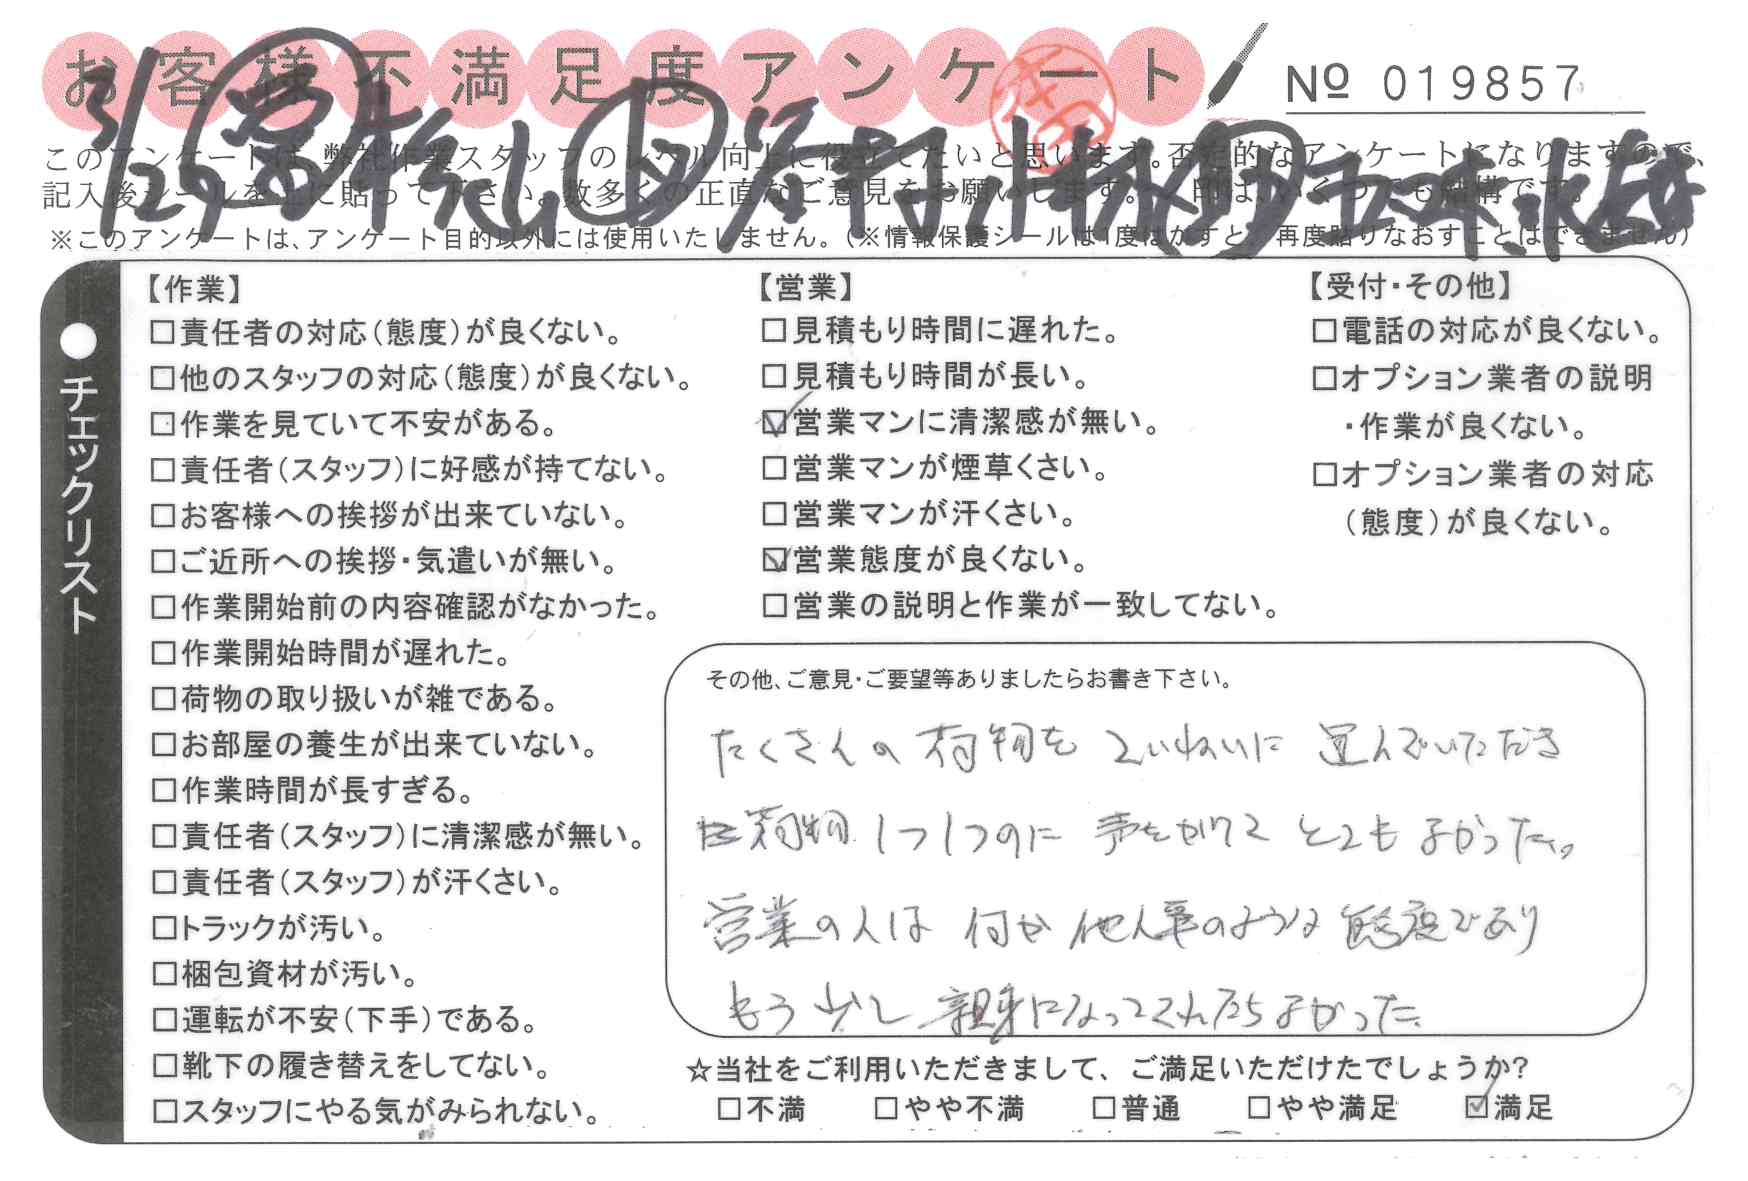 お客様不満足度アンケート
№ 019857
3/29 営
このアンケートは、弊社作業スタッフのレベル向上に役立てたいと思います。否定的なアンケートになりますので、
記入後シールを上に貼って下さい。数多くの正直なご意見をお願いします。✓印は、いくつでも結構です。
※このアンケートは、アンケート目的以外には使用いたしません。(※情報保護シールは1度はがすと、再度貼りなおすことはできません)
●チェックリスト
【作業】
□責任者の対応(態度)が良くない。
□他のスタッフの対応(態度)が良くない。
□作業を見ていて不安がある。
□責任者(スタッフ)に好感が持てない。
□お客様への挨拶が出来ていない。
□ご近所への挨拶・気遣いが無い。
□作業開始前の内容確認がなかった。
□作業開始時間が遅れた。
□荷物の取り扱いが雑である。
□お部屋の養生が出来ていない。
□作業時間が長すぎる。
□責任者(スタッフ)に清潔感が無い。
□責任者(スタッフ)が汗くさい。
□トラックが汚い。
□梱包資材が汚い。
□運転が不安(下手)である。
□靴下の履き替えをしてない。
□スタッフにやる気がみられない。
【営業】
□見積もり時間に遅れた。
□見積もり時間が長い。
☑営業マンに清潔感が無い。
□営業マンが煙草くさい。
□営業マンが汗くさい。
☑営業態度が良くない。
□営業の説明と作業が一致してない。
【受付・その他】
□電話の対応が良くない。
□オプション業者の説明
・作業が良くない。
□オプション業者の対応
(態度)が良くない。
その他、ご意見・ご要望等ありましたらお書き下さい。
たくさんの荷物を ていねいに 運んでいただき
荷物 1つ1つのに 声をかけて とても よかった。
営業の人は 何か 他人事のような 態度であり
もう少し 親身になってくれたらよかった。
☆当社をご利用いただきまして、ご満足いただけたでしょうか?
□不満 □やや不満 □普通 □やや満足 ☑満足